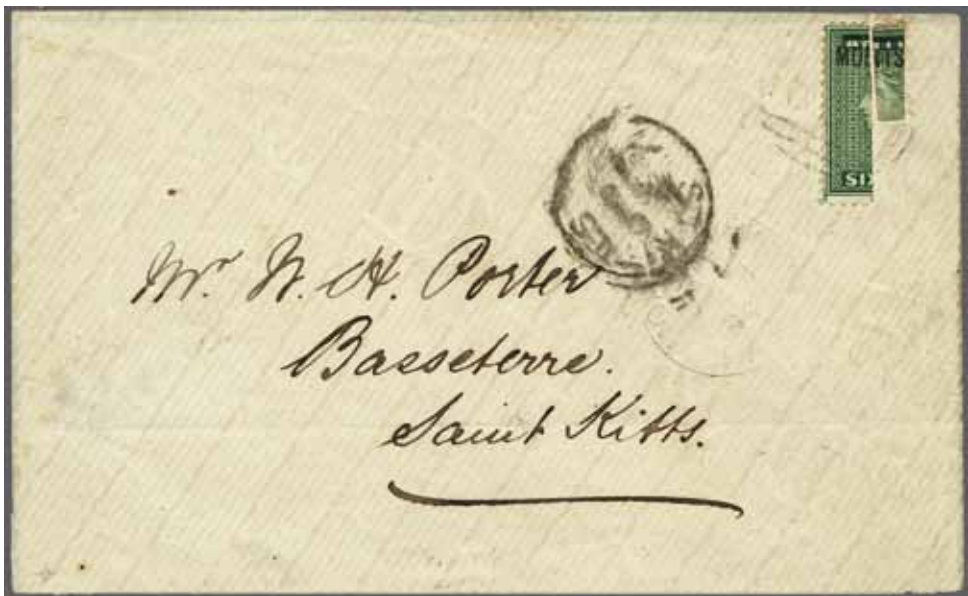 MONTS
SIX
Mr. W. H. Porter
Basseterre.
Saint Kitts.